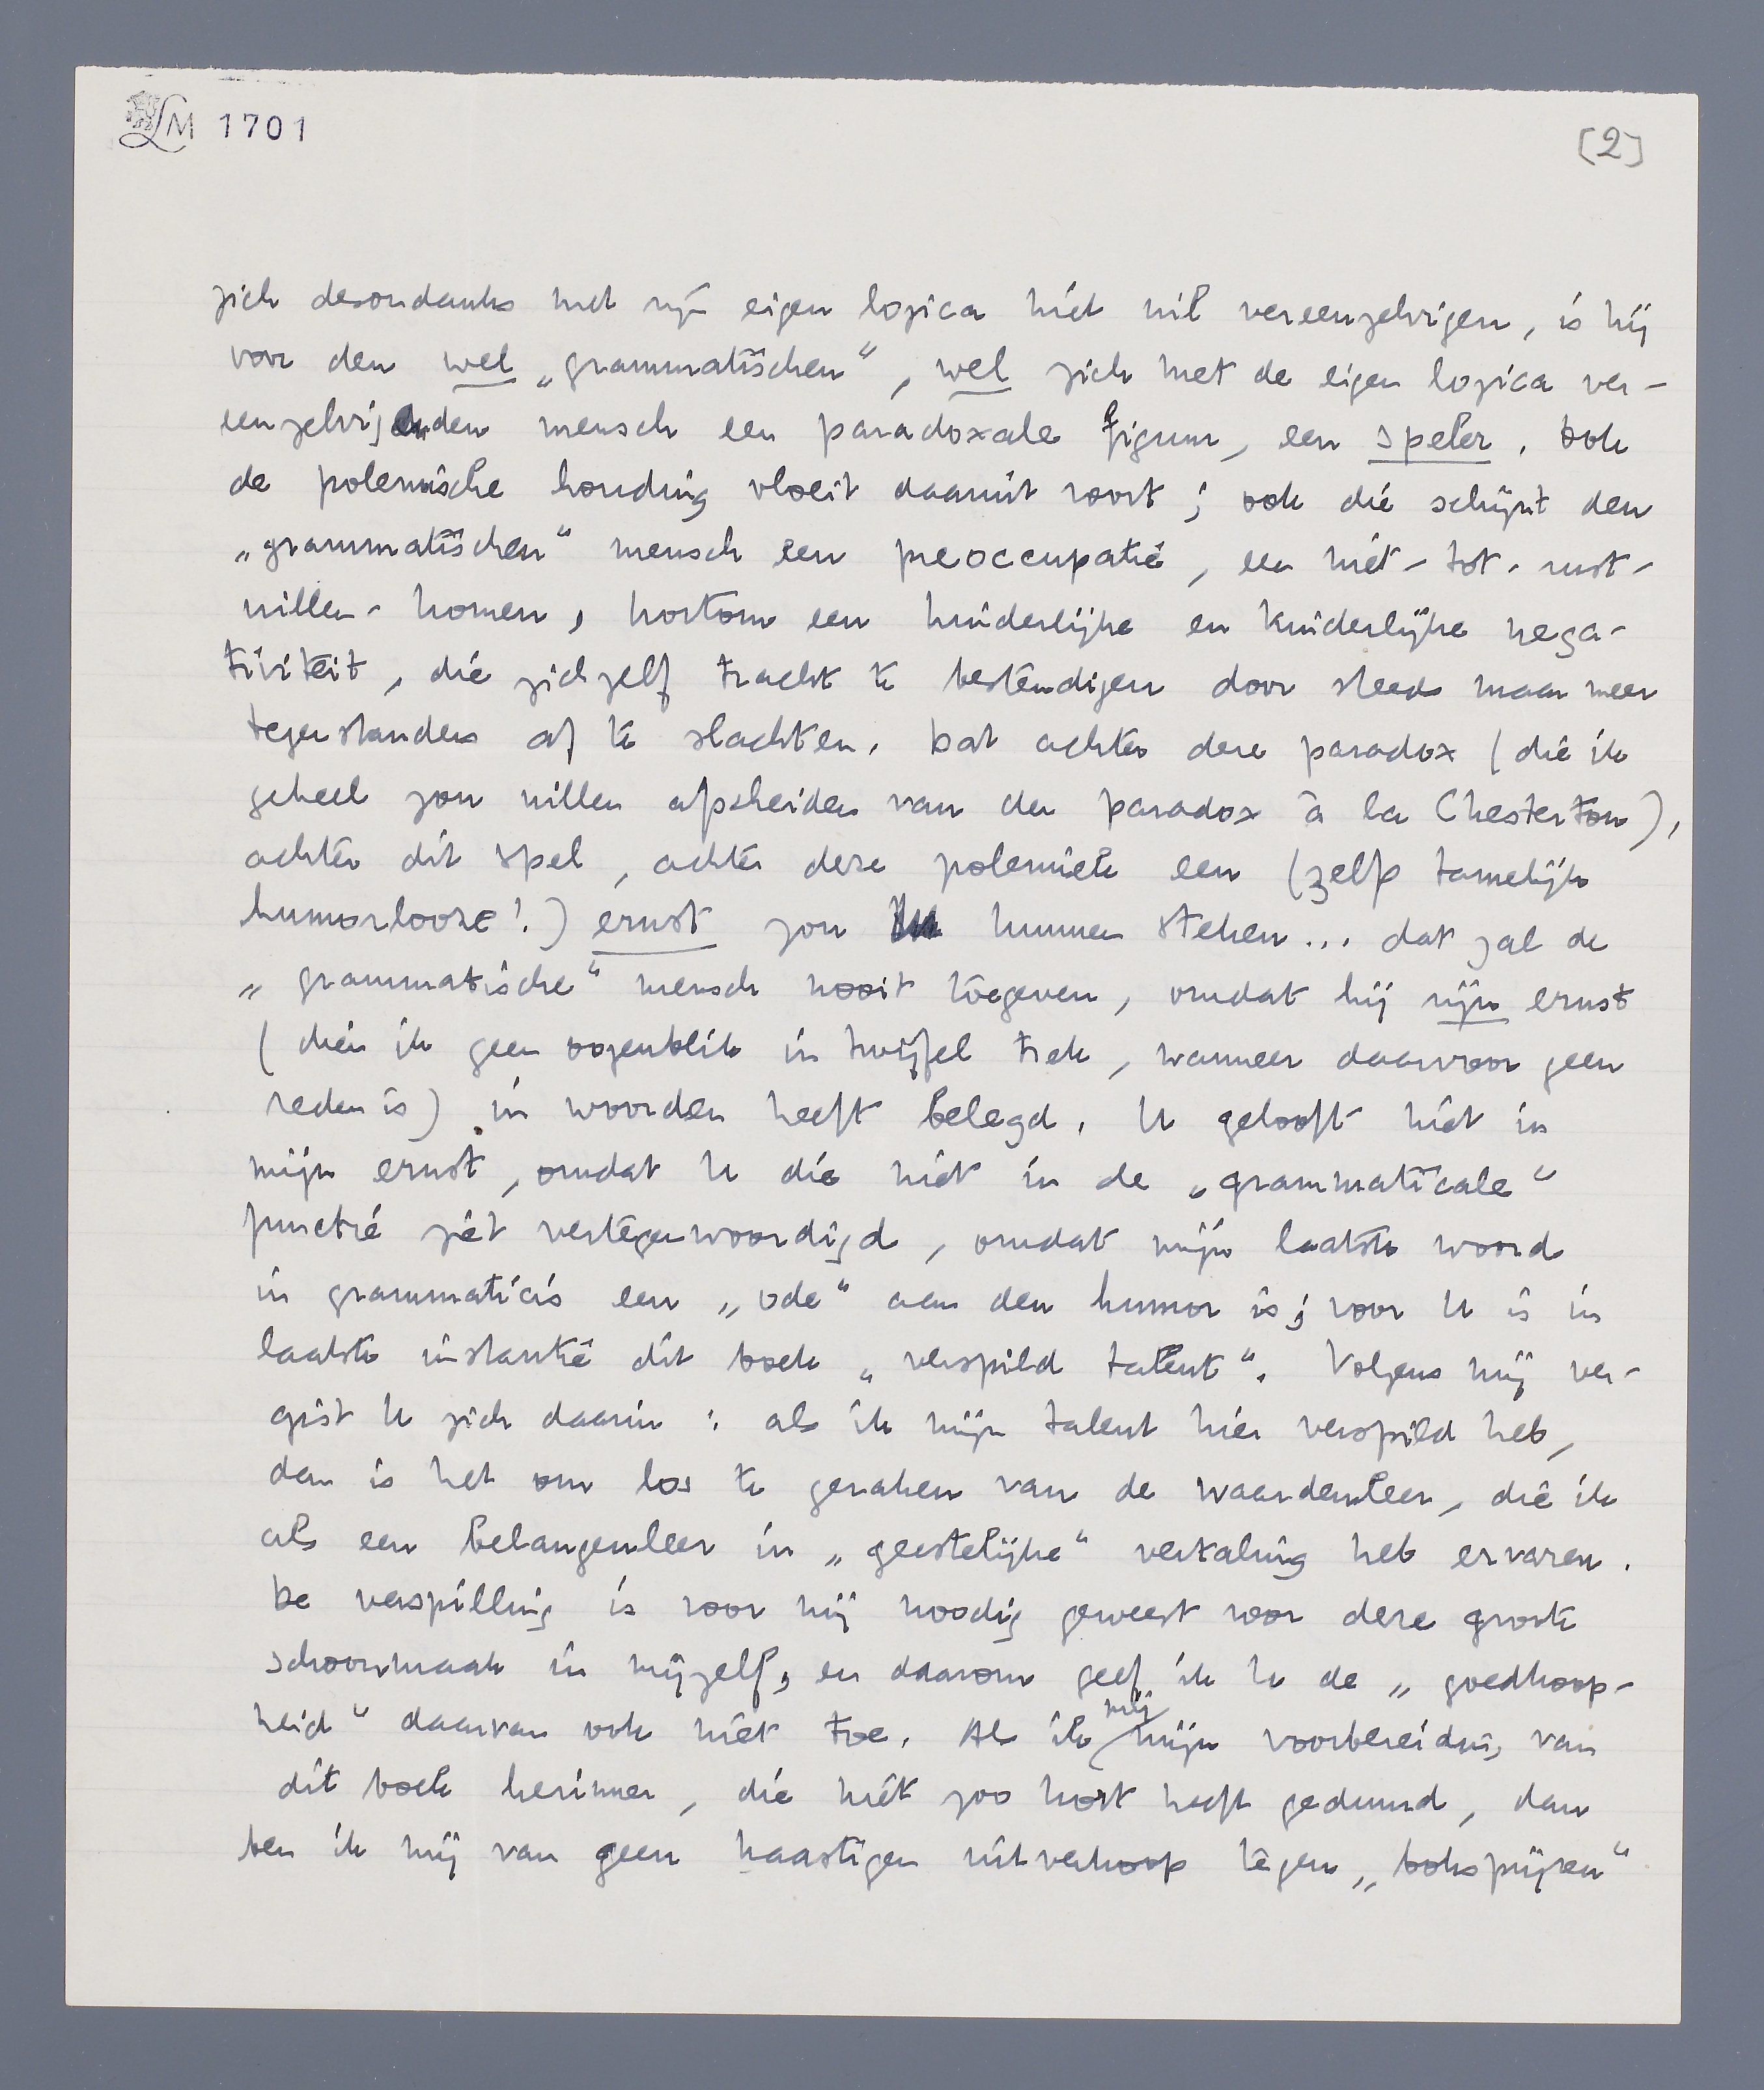 LM 1701
[2]
zich desondanks met zijn eigen logica niet wil vereenzelvigen, is hij
voor den wel „grammatischen“, wel zich met de eigen logica ver-
eenzelvigenden mensch een paradoxale figuur, een speler. Ook
de polemische houding vloeit daaruit voort; ook die schijnt den
„grammatischen“ mensch een preoccupatie, een niet-tot-rust-
willen-komen, kortom een hinderlijke en kinderlijke nega-
tiviteit, die zichzelf tracht te bestendigen door steeds maar meer
tegenstanders af te slachten. Dat achter deze paradox (die ik
geheel zou willen afscheiden van den paradox à la Chesterton),
achter dit spel, achter deze polemiek een (zelf tamelijk
humorlooze!) ernst zou kunnen steken... dat zal de
„grammatische“ mensch nooit toegeven, omdat hij zijn ernst
(dien ik geen oogenblik in twijfel trek, wanneer daarvoor geen
reden is) in woorden heeft belegd. U gelooft niet in
mijn ernst, omdat U die niet in de „grammaticale“
functie ziet vertegenwoordigd, omdat mijn laatste woord
in grammaticis een „ode“ aan den humor is; voor U is in
laatste instantie dit boek „verspild talent“. Volgens mij ver-
gist U zich daarin: als ik mijn talent hier verspild heb,
dan is het om los te geraken van de waardenleer, die ik
als een belangenleer in „geestelijke“ vertaling heb ervaren.
De verspilling is voor mij noodig geweest voor deze groote
schoonmaak in mijzelf, en daarom geef ik U de „goedkoop-
heid“ daarvan ook niet toe. Als ik mij mijn voorbereiding van
dit boek herinner, die niet zoo kort heeft geduurd, dan
ben ik mij van geen haastigen uitverkoop tegen „bokspijzen“